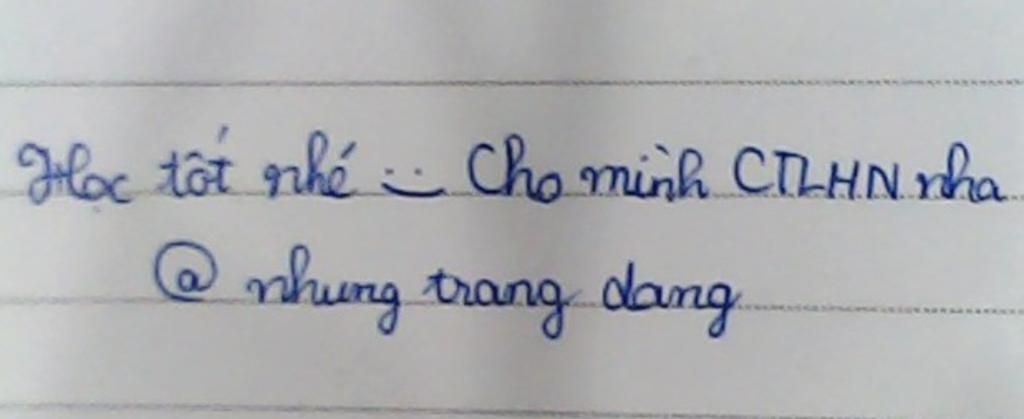 Học tốt nhé :) Cho mình CTLHN nha
@ nhung trang dang